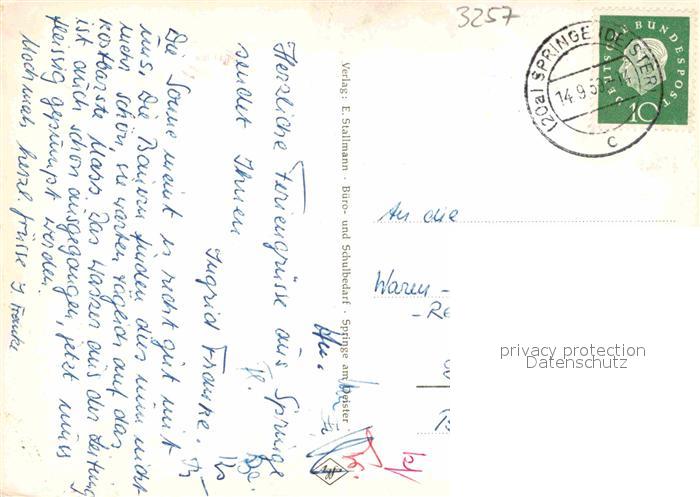 3257
(20a) SPRINGE (DEISTER)
14.9.59-14
c
DEUTSCHE BUNDESPOST
10
Herzliche Feriengrüsse aus Springe
sendet Ihnen
Ingrid Franke.
Die Sonne meint es recht gut mit
uns. Die Bauern finden das nun nicht
mehr schön, sie warten täglich auf das
kostbarste Nass. Das Wasser aus der Leitung
ist auch schon ausgegangen, jetzt muss
fleissig gepumpt werden.
Nochmals herzl. Grüsse J. Franke
Verlag: E. Stallmann · Büro- und Schulbedarf · Springe am Deister
An die
Waren-
-Re
privacy protection
Datenschutz